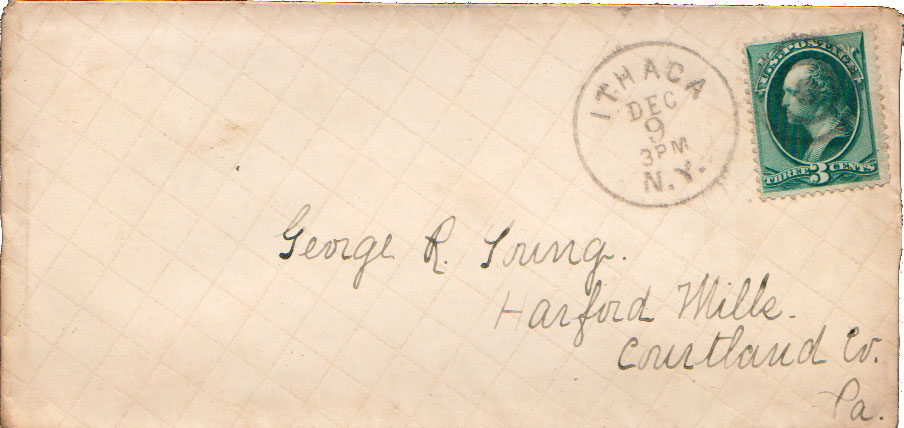 ITHACA
DEC
9
3PM
N.Y.
U.S. POSTAGE
THREE 3 CENTS
George R. Young.
Harford Mills.
Courtland Co.
Pa.